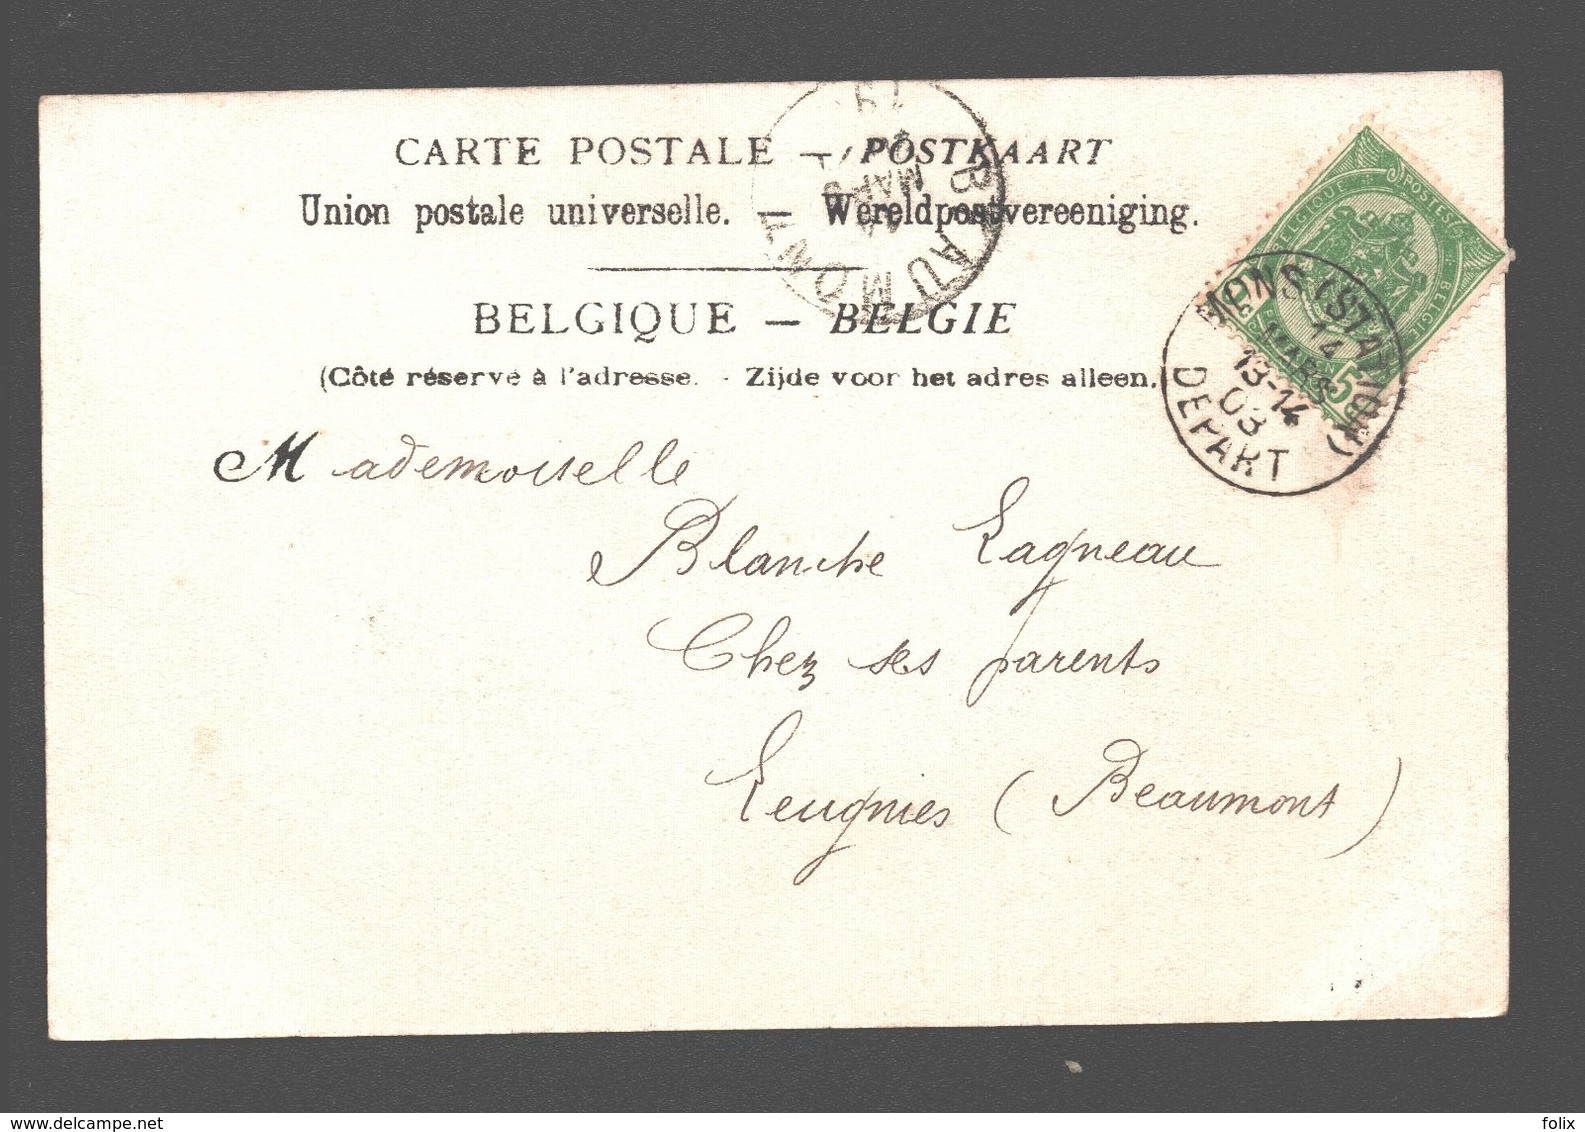 CARTE POSTALE — POSTKAART
Union postale universelle. — Wereldpostvereeniging.
BELGIQUE — BELGIE
(Côté réservé à l'adresse. - Zijde voor het adres alleen.
BEAUMONT
MARS
POSTES
BELGIQUE
BELGIE
5
MONS (STATION)
14
MARS
13-14
03
DEPART
Mademoiselle
Blanche Lagneau
Chez ses parents
Leugnies (Beaumont)
delcampe.net
felix